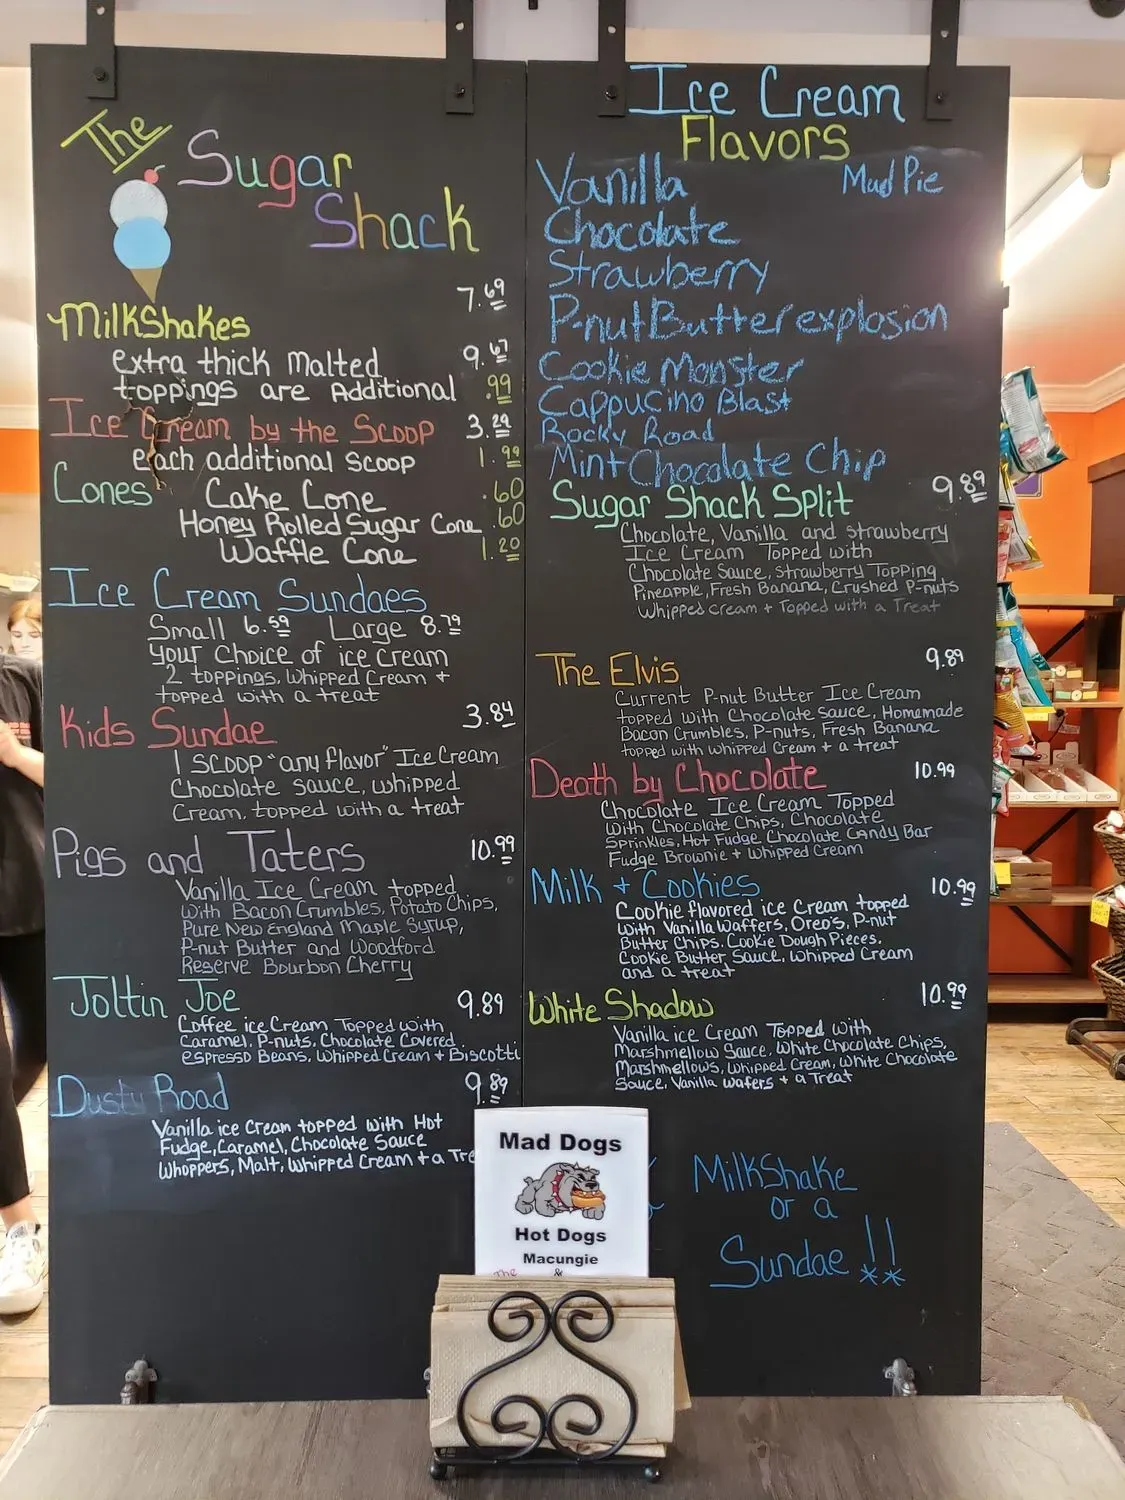 The
Sugar
Shack
MilkShakes 7.69
extra thick Malted 9.67
toppings are Additional .99
Ice Cream by the Scoop 3.29
each additional scoop 1.99
Cones Cake Cone .60
Honey Rolled Sugar Cone .60
Waffle Cone 1.20
Ice Cream Sundaes
Small 6.59 Large 8.79
your Choice of ice cream
2 toppings, whipped Cream +
topped with a treat
Kids Sundae 3.84
1 scoop "any flavor" Ice Cream
Chocolate sauce, whipped
Cream, topped with a treat
Pigs and Taters 10.99
Vanilla Ice Cream topped
with Bacon Crumbles, Potato Chips,
Pure New England Maple Syrup,
P-nut Butter and Woodford
Reserve Bourbon Cherry
Joltin Joe 9.89
Coffee ice Cream Topped with
Caramel, P-nuts, Chocolate Covered
espresso Beans, Whipped Cream + Biscotti
Dusty Road 9.89
Vanilla ice Cream topped with Hot
Fudge, Caramel, Chocolate Sauce
Whoppers, Malt, Whipped Cream + a Tre
Ice Cream
Flavors
Vanilla Mud Pie
Chocolate
Strawberry
P-nut Butter explosion
Cookie Monster
Cappucino Blast
Rocky Road
Mint Chocolate Chip
Sugar Shack Split 9.89
Chocolate, Vanilla and strawberry
Ice Cream Topped with
Chocolate Sauce, Strawberry Topping
Pineapple, Fresh Banana, Crushed P-nuts
Whipped cream + Topped with a Treat
The Elvis 9.89
Current P-nut Butter Ice Cream
topped with Chocolate Sauce, Homemade
Bacon Crumbles, P-nuts, Fresh Banana
topped with whipped Cream + a treat
Death by Chocolate 10.99
Chocolate Ice Cream Topped
with Chocolate Chips, Chocolate
Sprinkles, Hot Fudge, Chocolate Candy Bar
Fudge Brownie + Whipped Cream
Milk + Cookies 10.99
Cookie flavored ice Cream topped
with Vanilla Waffers, Oreo's, P-nut
Butter Chips, Cookie Dough Pieces,
Cookie Butter Sauce, Whipped Cream
and a treat
White Shadow 10.99
Vanilla ice Cream Topped with
Marshmellow Sauce, White Chocolate Chips,
Marshmellows, Whipped Cream, White Chocolate
Sauce, Vanilla wafers + a Treat
MilkShake
or a
Sundae !!
**
Mad Dogs
Hot Dogs
Macungie
The &